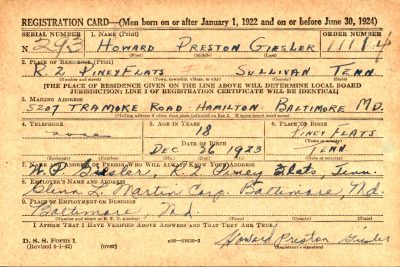 REGISTRATION CARD—(Men born on or after January 1, 1922 and on or before June 30, 1924)
SERIAL NUMBER 1. NAME (Print) ORDER NUMBER
N 293 HOWARD PRESTON GIESLER 11114
(First) (Middle) (Last)
2. PLACE OF RESIDENCE (Print)
R. 2 PINEY FLATS SULLIVAN TENN.
(Number and street) (Town, township, village, or city) (County) (State)
[THE PLACE OF RESIDENCE GIVEN ON THE LINE ABOVE WILL DETERMINE LOCAL BOARD
JURISDICTION; LINE 2 OF REGISTRATION CERTIFICATE WILL BE IDENTICAL]
3. MAILING ADDRESS
5207 TRAMORE ROAD HAMILTON BALTIMORE MD.
[Mailing address if other than place indicated on line 2. If same insert word same]
4. TELEPHONE 5. AGE IN YEARS 6. PLACE OF BIRTH
none 18 PINEY FLATS
DATE OF BIRTH (Town or county)
DEC 26 1923 TENN.
(Exchange) (Number) (Mo.) (Day) (Yr.) (State or country)
7. NAME AND ADDRESS OF PERSON WHO WILL ALWAYS KNOW YOUR ADDRESS
W. P. Giesler, R. 2 Piney Flats, Tenn.
8. EMPLOYER'S NAME AND ADDRESS
Glenn L. Martin Corp. Baltimore, Md.
9. PLACE OF EMPLOYMENT OR BUSINESS
Baltimore, Md.
(Number and street or R. F. D. number) (Town) (County) (State)
I AFFIRM THAT I HAVE VERIFIED ABOVE ANSWERS AND THAT THEY ARE TRUE.
D. S. S. Form 1
(Revised 6-1-42) (over) Howard Preston Giesler
(Registrant's signature)